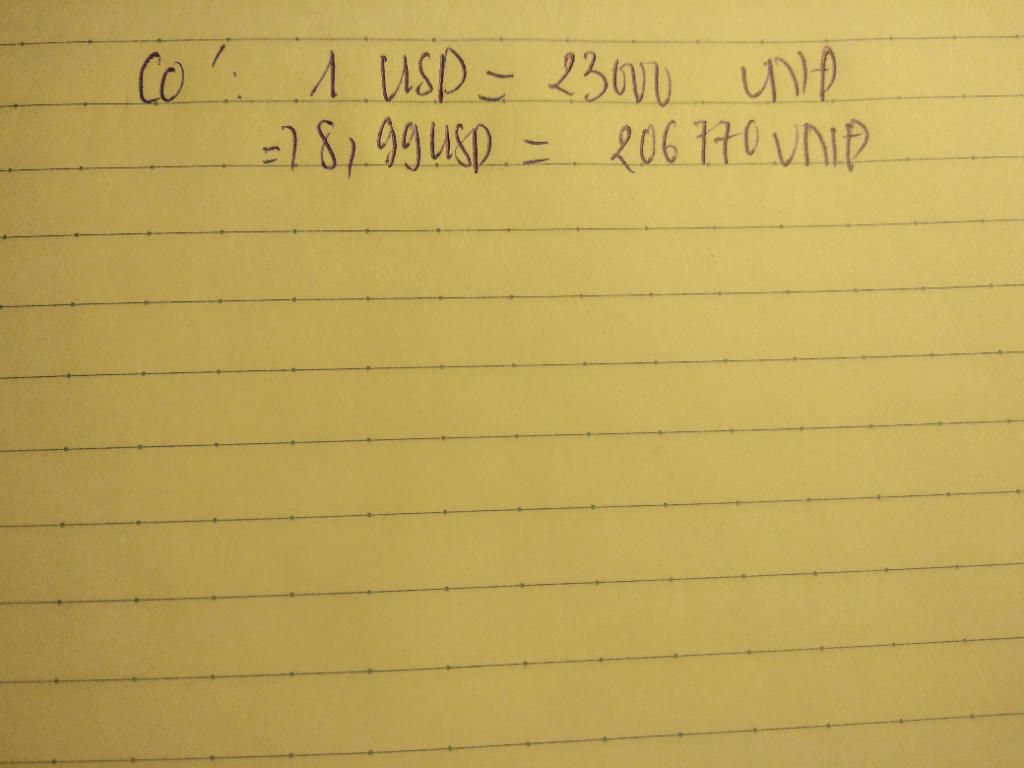 Có: 1 USD = 23000 VNĐ
=> 8,99USD = 206770 VNĐ